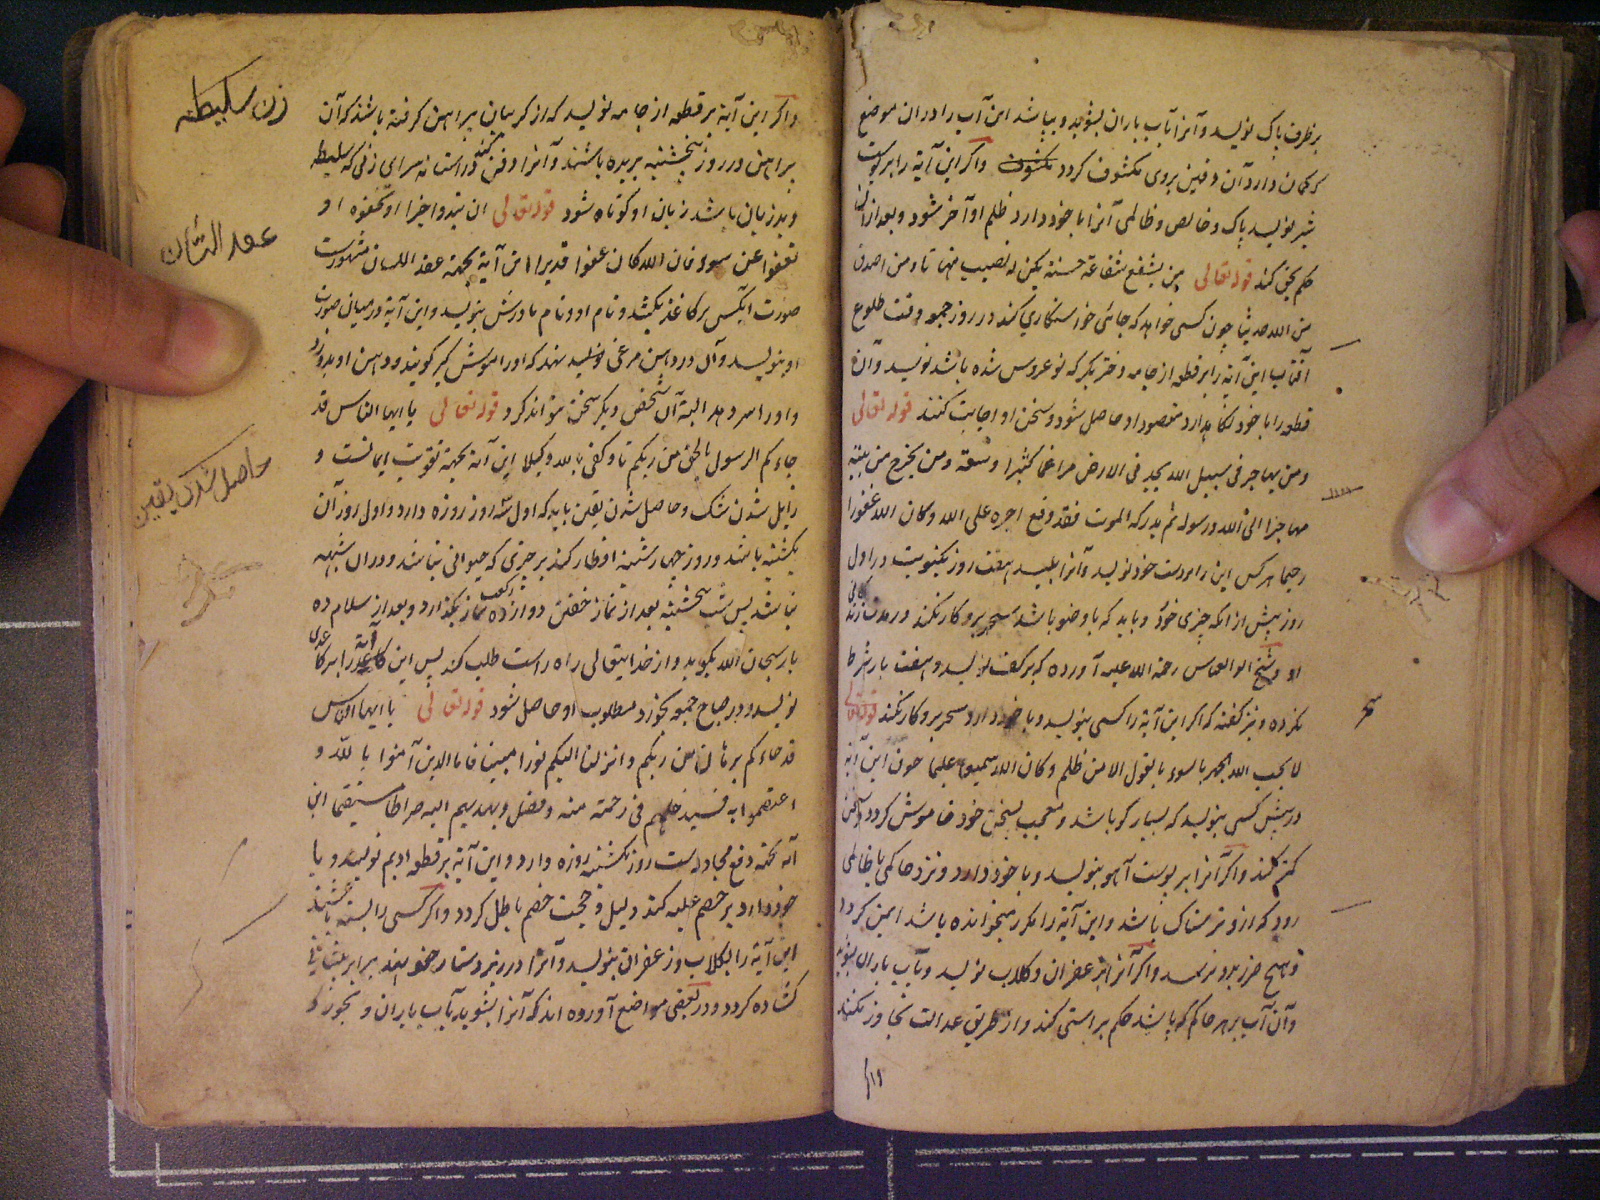 بر ظرف پاک نویسد و آنرا بآب باران بشوید و بپاشد این آب را در ان موضع
که کمان دارد آن دفین بروی مکشوف کردد مکشوف واکر این آیة را بر پوست
شیر نویسد پاک و خالص و ظالمی آنرا با خود دارد ظلم او آخر شود و بعد ازان
حکم بحق کند قوله تعالی من یشفع شفاعة حسنة یکن له نصیب منها تا و من اصدق
من الله حدیثا چون کسی خواهد که جائی خواستکاری کند در روز جمعه وقت طلوع
آفتاب این آیة را بر قطعه از جامه دختر بکر که نو عروس شده باشد نویسد و آن
قطعه را با خود نکاهدارد مقصود او حاصل شود و سخن او اجابت کنند قوله تعالی
و من یهاجر فی سبیل الله یجد فی الارض مراغما کثیرا و سعة و من یخرج من بیته
مهاجرا الی الله و رسوله ثم یدرکه الموت فقد وقع اجره علی الله و کان الله غفورا
رحیما هر کس این را بر دست خود نویسد و آنرا بلیسد هفت روز یکنوبت در اول
روز پیش از انکه چیزی خورد و باید که با وضو باشد سحر برو کار نکند در مدت زندکانی
او و شیخ ابو العباس رحمة الله علیه آورده که بر کف نویسد و هفت بار شرط
نکرده و نیز کفته که اکر این آیة را کسی بنویسد و با خود دارد سحر برو کار نکند قوله تعالی
لا یحب الله الجهر بالسوء بالقول الا من ظلم و کان الله سمیعا علیما چون این آیة
در پیش کسی بنویسد که بسیار کو باشد و معجب بسخن خود خاموش کردد و سخن
کمتر کند واکر آنرا بر پوست آهو بنویسد و با خود دارد و نزد حاکمی یا ظالمی
رود که ازو ترسناک باشد و این آیة را مکرر میخوانده باشد ایمن کردد
و هیچ ضرر بدو نرسد واکر آنرا بزعفران و کلاب نویسد و بآب باران بشوید
و آن آب بهر حاکم که پاشد حکم براستی کند و از طریق عدالت تجاوز نکند
سحر
واکر این آیة بر قطعه از جامه نویسد که از کریبان پیراهن کرفته باشند که آن
پیراهن در روز پنجشنبه بریده باشند و آنرا دفن کند در آستانه سرای زنی که سلیطه
و بد زبان باشد زبان او کوتاه شود قوله تعالی ان تبدوا خیرا او تخفوه او
تعفوا عن سوء فان الله کان عفوا قدیرا این آیة بجهة عقد اللسان مشهورست
صورت آنکس بر کاغذ بکشد و نام او و نام مادرش بنویسد و این آیة در میان صورت
او بنویسد و آن در دهن مرغی نهد که او را موش کیر کویند و دهن او بدوزد
و او را سر دهد البته آن شخص دیکر سخن نتواند کرد قوله تعالی یا ایها الناس قد
جاءکم الرسول بالحق من ربکم تا و کفی بالله وکیلا این آیة بجهة تقویت ایمانست و
زایل شدن شک و حاصل شدن یقین باید که اول سه روز روزه دارد و اول روز آن
یکشنبه باشد و روز چهارشنبه افطار کند بر چیزی که حیوانی نباشد و در ان شبهه
نباشد پس شب پنجشنبه بعد از نماز خفتن دوازده رکعت نماز بکذارد و بعد از سلام ده
بار سبحان الله بکوید و از خدایتعالی راه راست طلب کند پس این آیة را بر کاغدی
نویسد و در صباح جمعه بخورد مطلوب او حاصل شود قوله تعالی یا ایها الناس
قد جاءکم برهان من ربکم و انزلنا الیکم نورا مبینا فاما الذین آمنوا بالله و
اعتصموا به فسیدخلهم فی رحمة منه و فضل و یهدیهم الیه صراطا مستقیما این
آیة بجهة دفع مجادله است روز یکشنبه روزه دارد و این آیة بر قطعه ادیم نویسد و با
خود دارد بر خصم غلبه کند و دلیل و حجت خصم باطل کردد واکر کسی را بسته باشند
این آیة را بکلاب و زعفران بنویسد و آنرا در زیر دستار خود نهد برابر پیشانی
کشاده کردد و در بعضی مواضع آورده اند که آنرا بشوید بآب باران و بخورد
زن سلیطه
عقد اللسان
حاصل شدن یقین